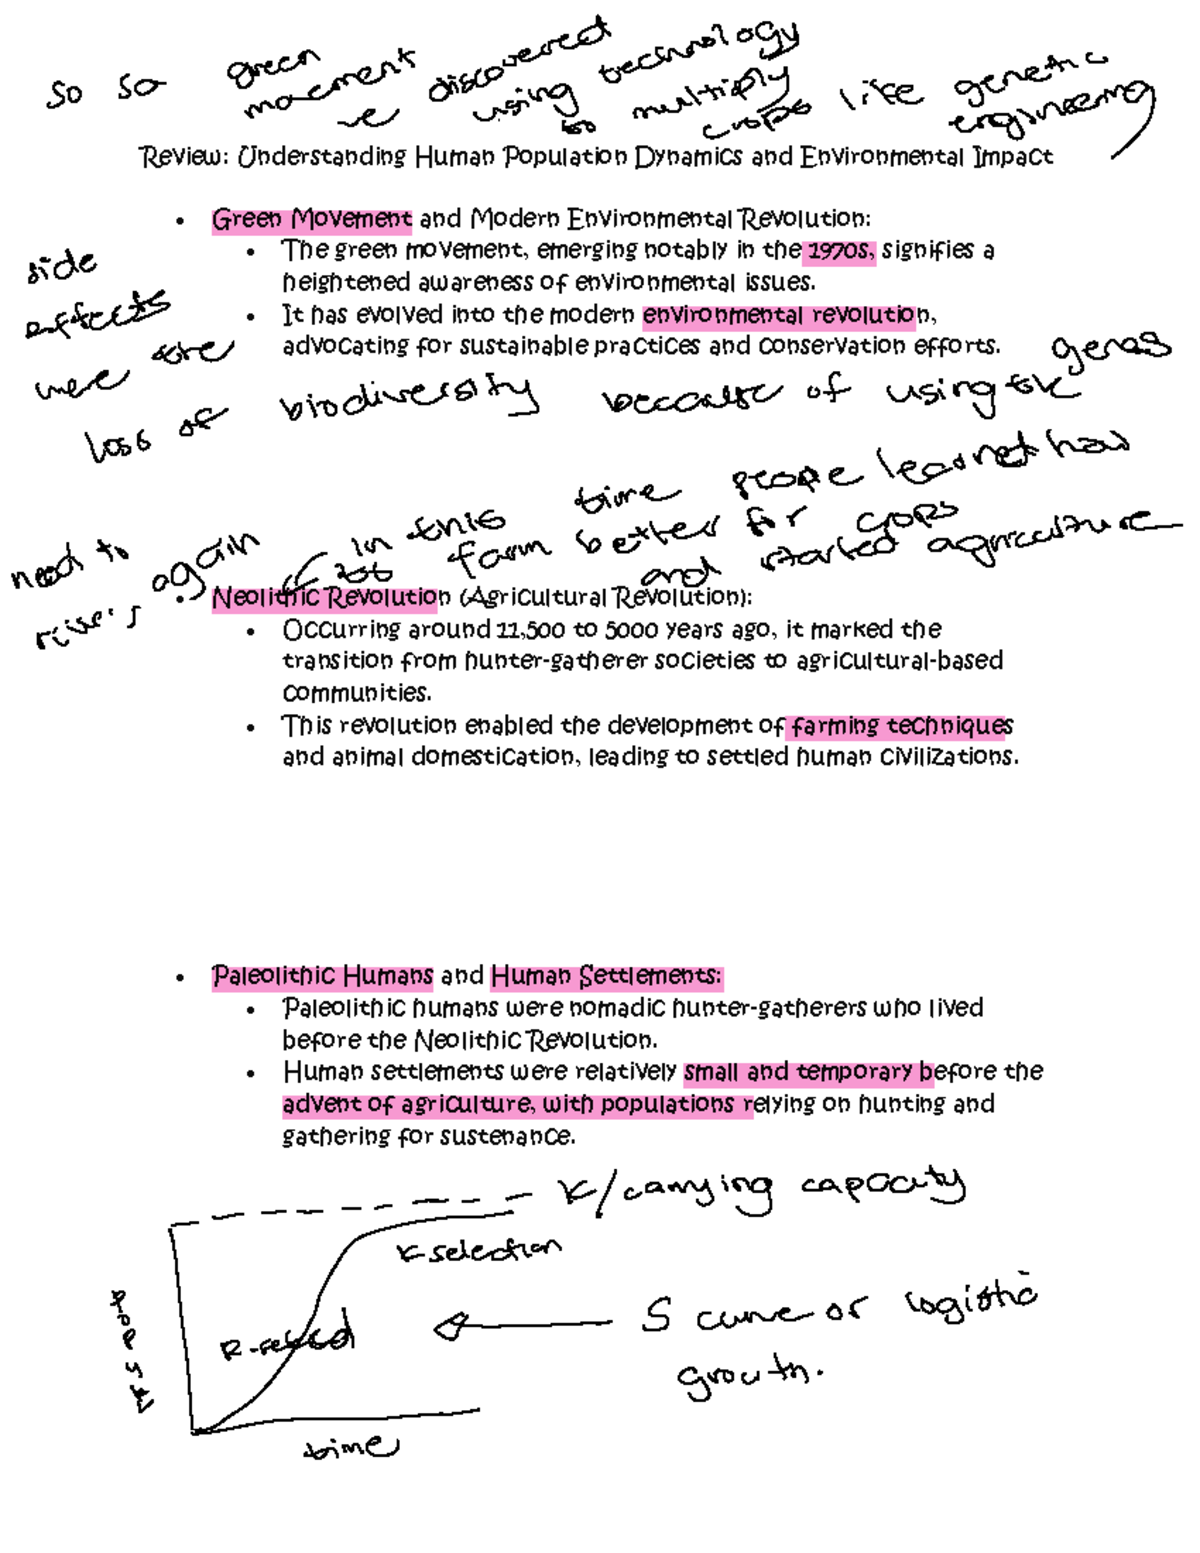 so so green movement we discovered using technology to multiply crops like genetic engineering
Review: Understanding Human Population Dynamics and Environmental Impact
• Green Movement and Modern Environmental Revolution:
• The green movement, emerging notably in the 1970s, signifies a
heightened awareness of environmental issues.
• It has evolved into the modern environmental revolution,
advocating for sustainable practices and conservation efforts.
side
effects
were are
loss of biodiversity because of using the genas
in this time people learnet how
farm better for crops
and started agriculture
need to
again
• Neolithic Revolution (Agricultural Revolution):
• Occurring around 11,500 to 5000 years ago, it marked the
transition from hunter-gatherer societies to agricultural-based
communities.
• This revolution enabled the development of farming techniques
and animal domestication, leading to settled human civilizations.
• Paleolithic Humans and Human Settlements:
• Paleolithic humans were nomadic hunter-gatherers who lived
before the Neolithic Revolution.
• Human settlements were relatively small and temporary before the
advent of agriculture, with populations relying on hunting and
gathering for sustenance.
K/carrying capacity
K-selection
S curve or logistic
growth.
time